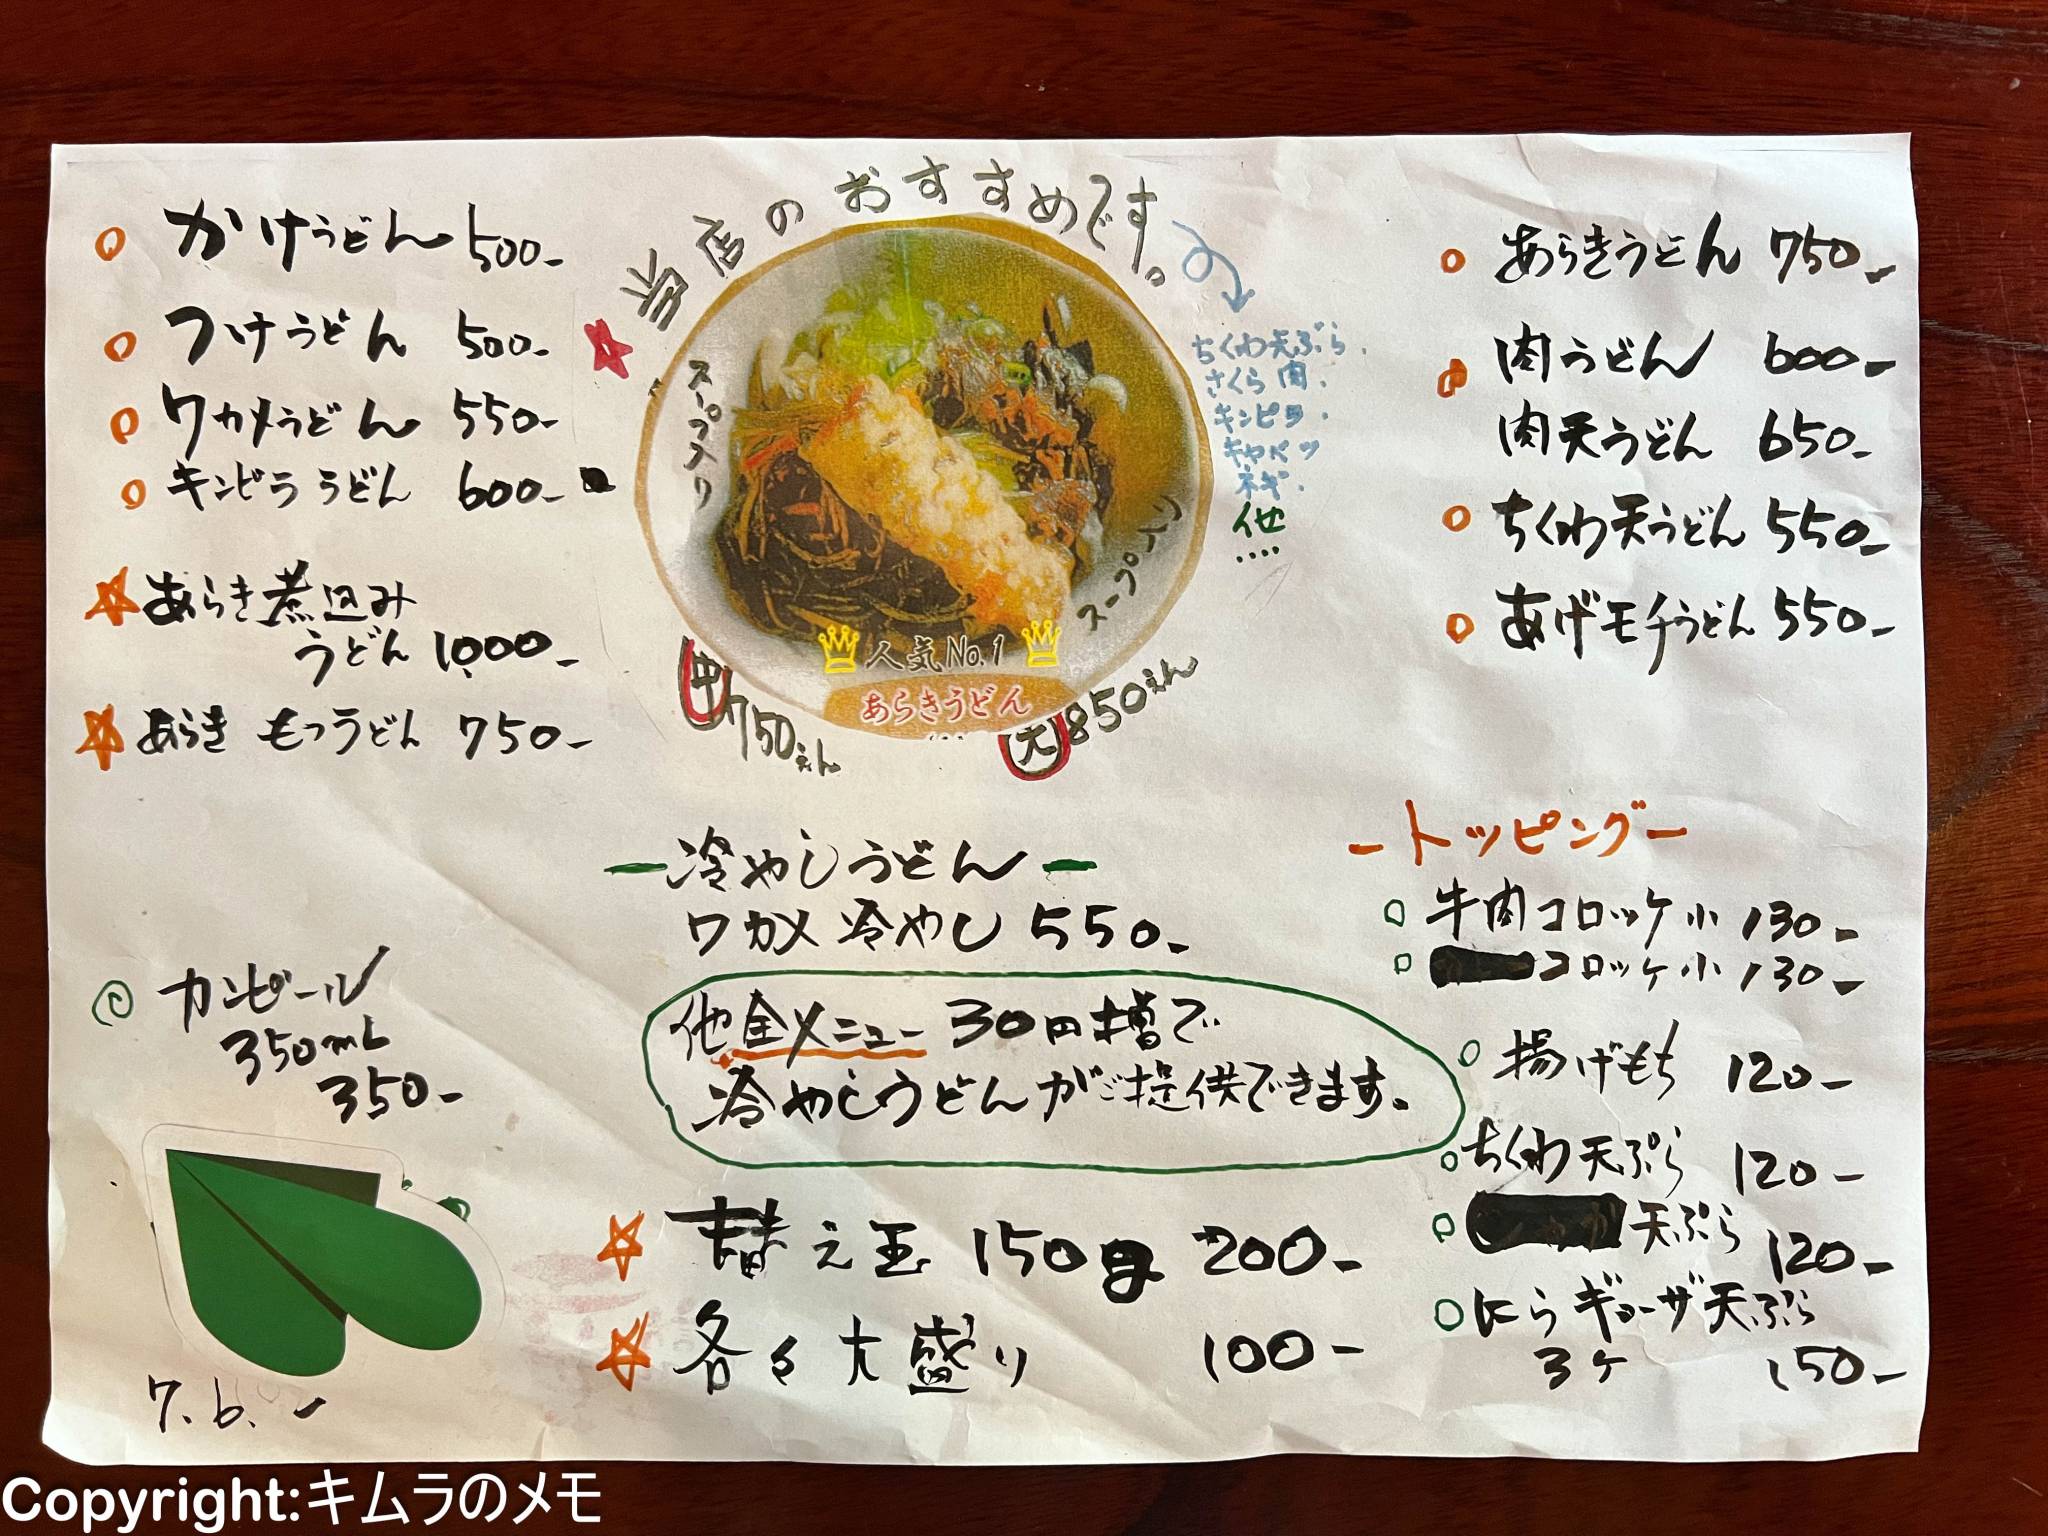 かけうどん 500-
つけうどん 500-
ワカメうどん 550-
キンピラうどん 600-
あらき煮込み
うどん 1,000-
あらき もつうどん 750-
カンビール
350mL
350-
7.6.
当店のおすすめです。
スープ入り
スープ入り
人気No.1
あらきうどん
中 750えん
大 850えん
ちくわ天ぷら.
さくら肉.
キンピラ.
キャベツ
ネギ.
他
....
ー冷やしうどんー
ワカメ冷やし 550-
他全メニュー 30円増で
冷やしうどんがご提供できます。
替え玉 150g 200-
各々大盛り 100-
あらきうどん 750-
肉うどん 600-
肉天うどん 650-
ちくわ天うどん 550-
あげモチうどん 550-
ートッピングー
牛肉コロッケ小 130-
コロッケ小 130-
揚げもち 120-
ちくわ天ぷら 120-
天ぷら 120-
にらギョーザ天ぷら
3ケ 150-
Copyright:キムラのメモ